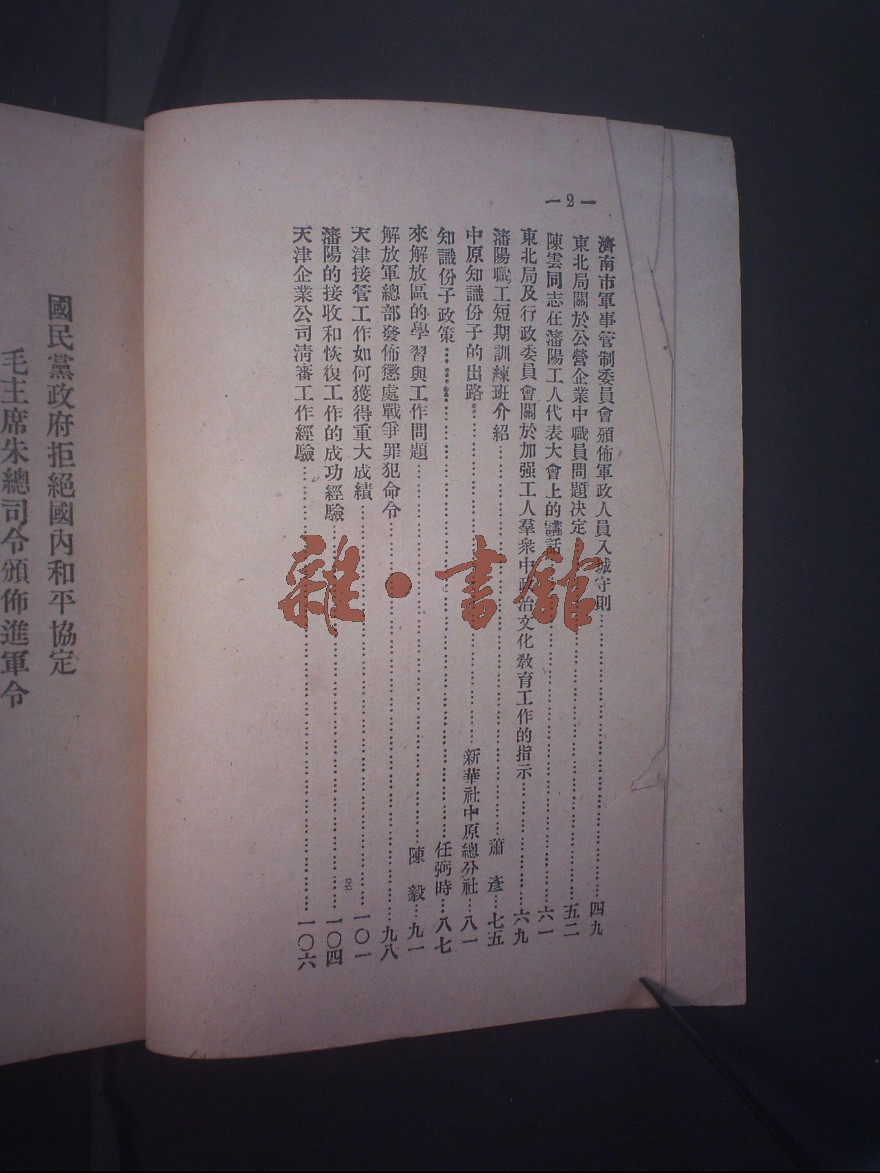 —2—
濟南市軍事管制委員會頒佈軍政人員入城守則……四九
東北局關於公營企業中職員問題决定……五二
陳雲同志在瀋陽工人代表大會上的講話……六一
東北局及行政委員會關於加强工人羣衆中政治文化敎育工作的指示……六九
瀋陽職工短期訓練班介紹……蕭彥…七五
中原知識份子的出路……新華社中原總分社…八一
知識份子政策……任弼時…八七
來解放區的學習與工作問題……陳毅…九一
解放軍總部發佈懲處戰爭罪犯命令……九八
天津接管工作如何獲得重大成績……一〇一
瀋陽的接收和恢復工作的成功經驗……一〇四
天津企業公司淸審工作經驗……一〇六
國民黨政府拒絕國內和平協定
毛主席朱總司令頒佈進軍令
雜·書館